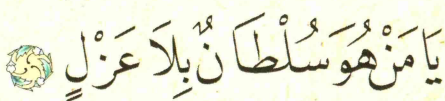 يَا مَنْ هُوَ سُلْطَانٌ بِلَا عَزْلٍ